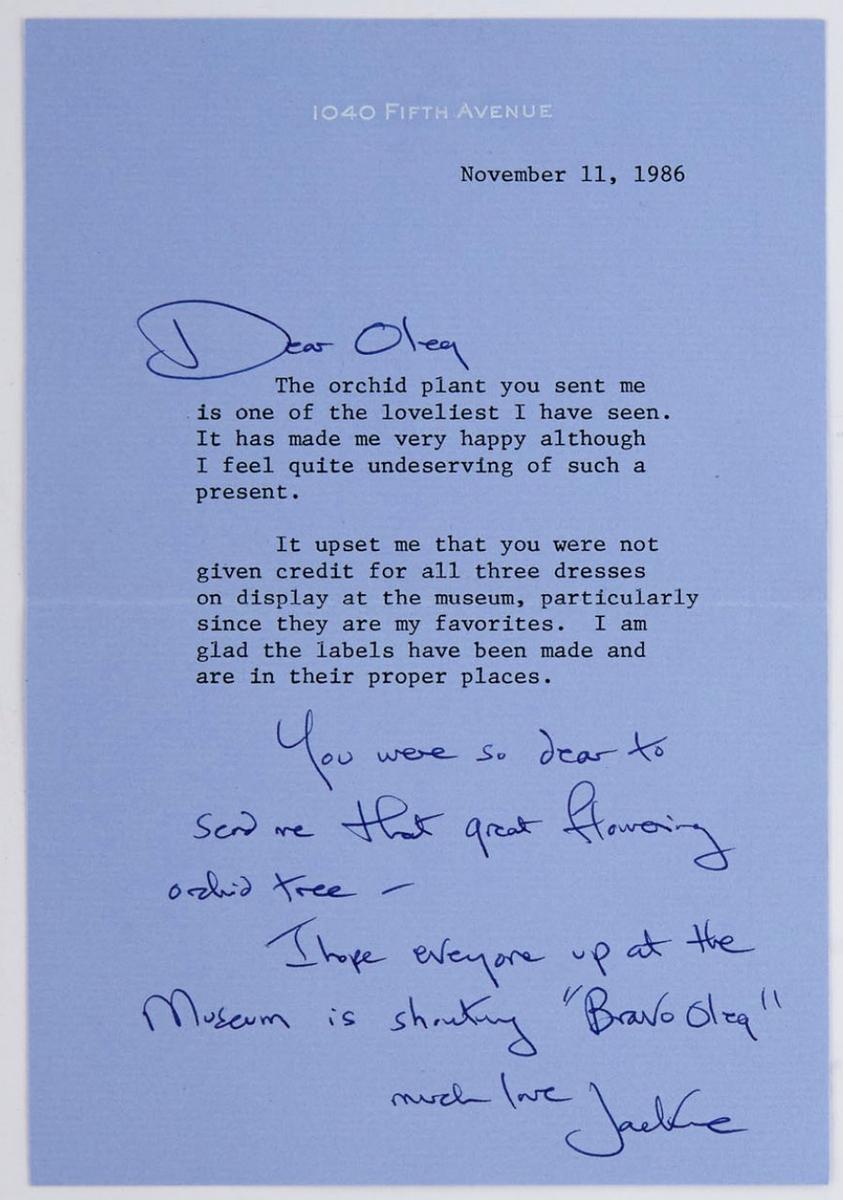 1040 FIFTH AVENUE
November 11, 1986
Dear Oleg
The orchid plant you sent me
is one of the loveliest I have seen.
It has made me very happy although
I feel quite undeserving of such a
present.
It upset me that you were not
given credit for all three dresses
on display at the museum, particularly
since they are my favorites. I am
glad the labels have been made and
are in their proper places.
You were so dear to
send me that great flowering
orchid tree –
I hope everyone up at the
Museum is shouting "Bravo Oleg"
much love Jackie